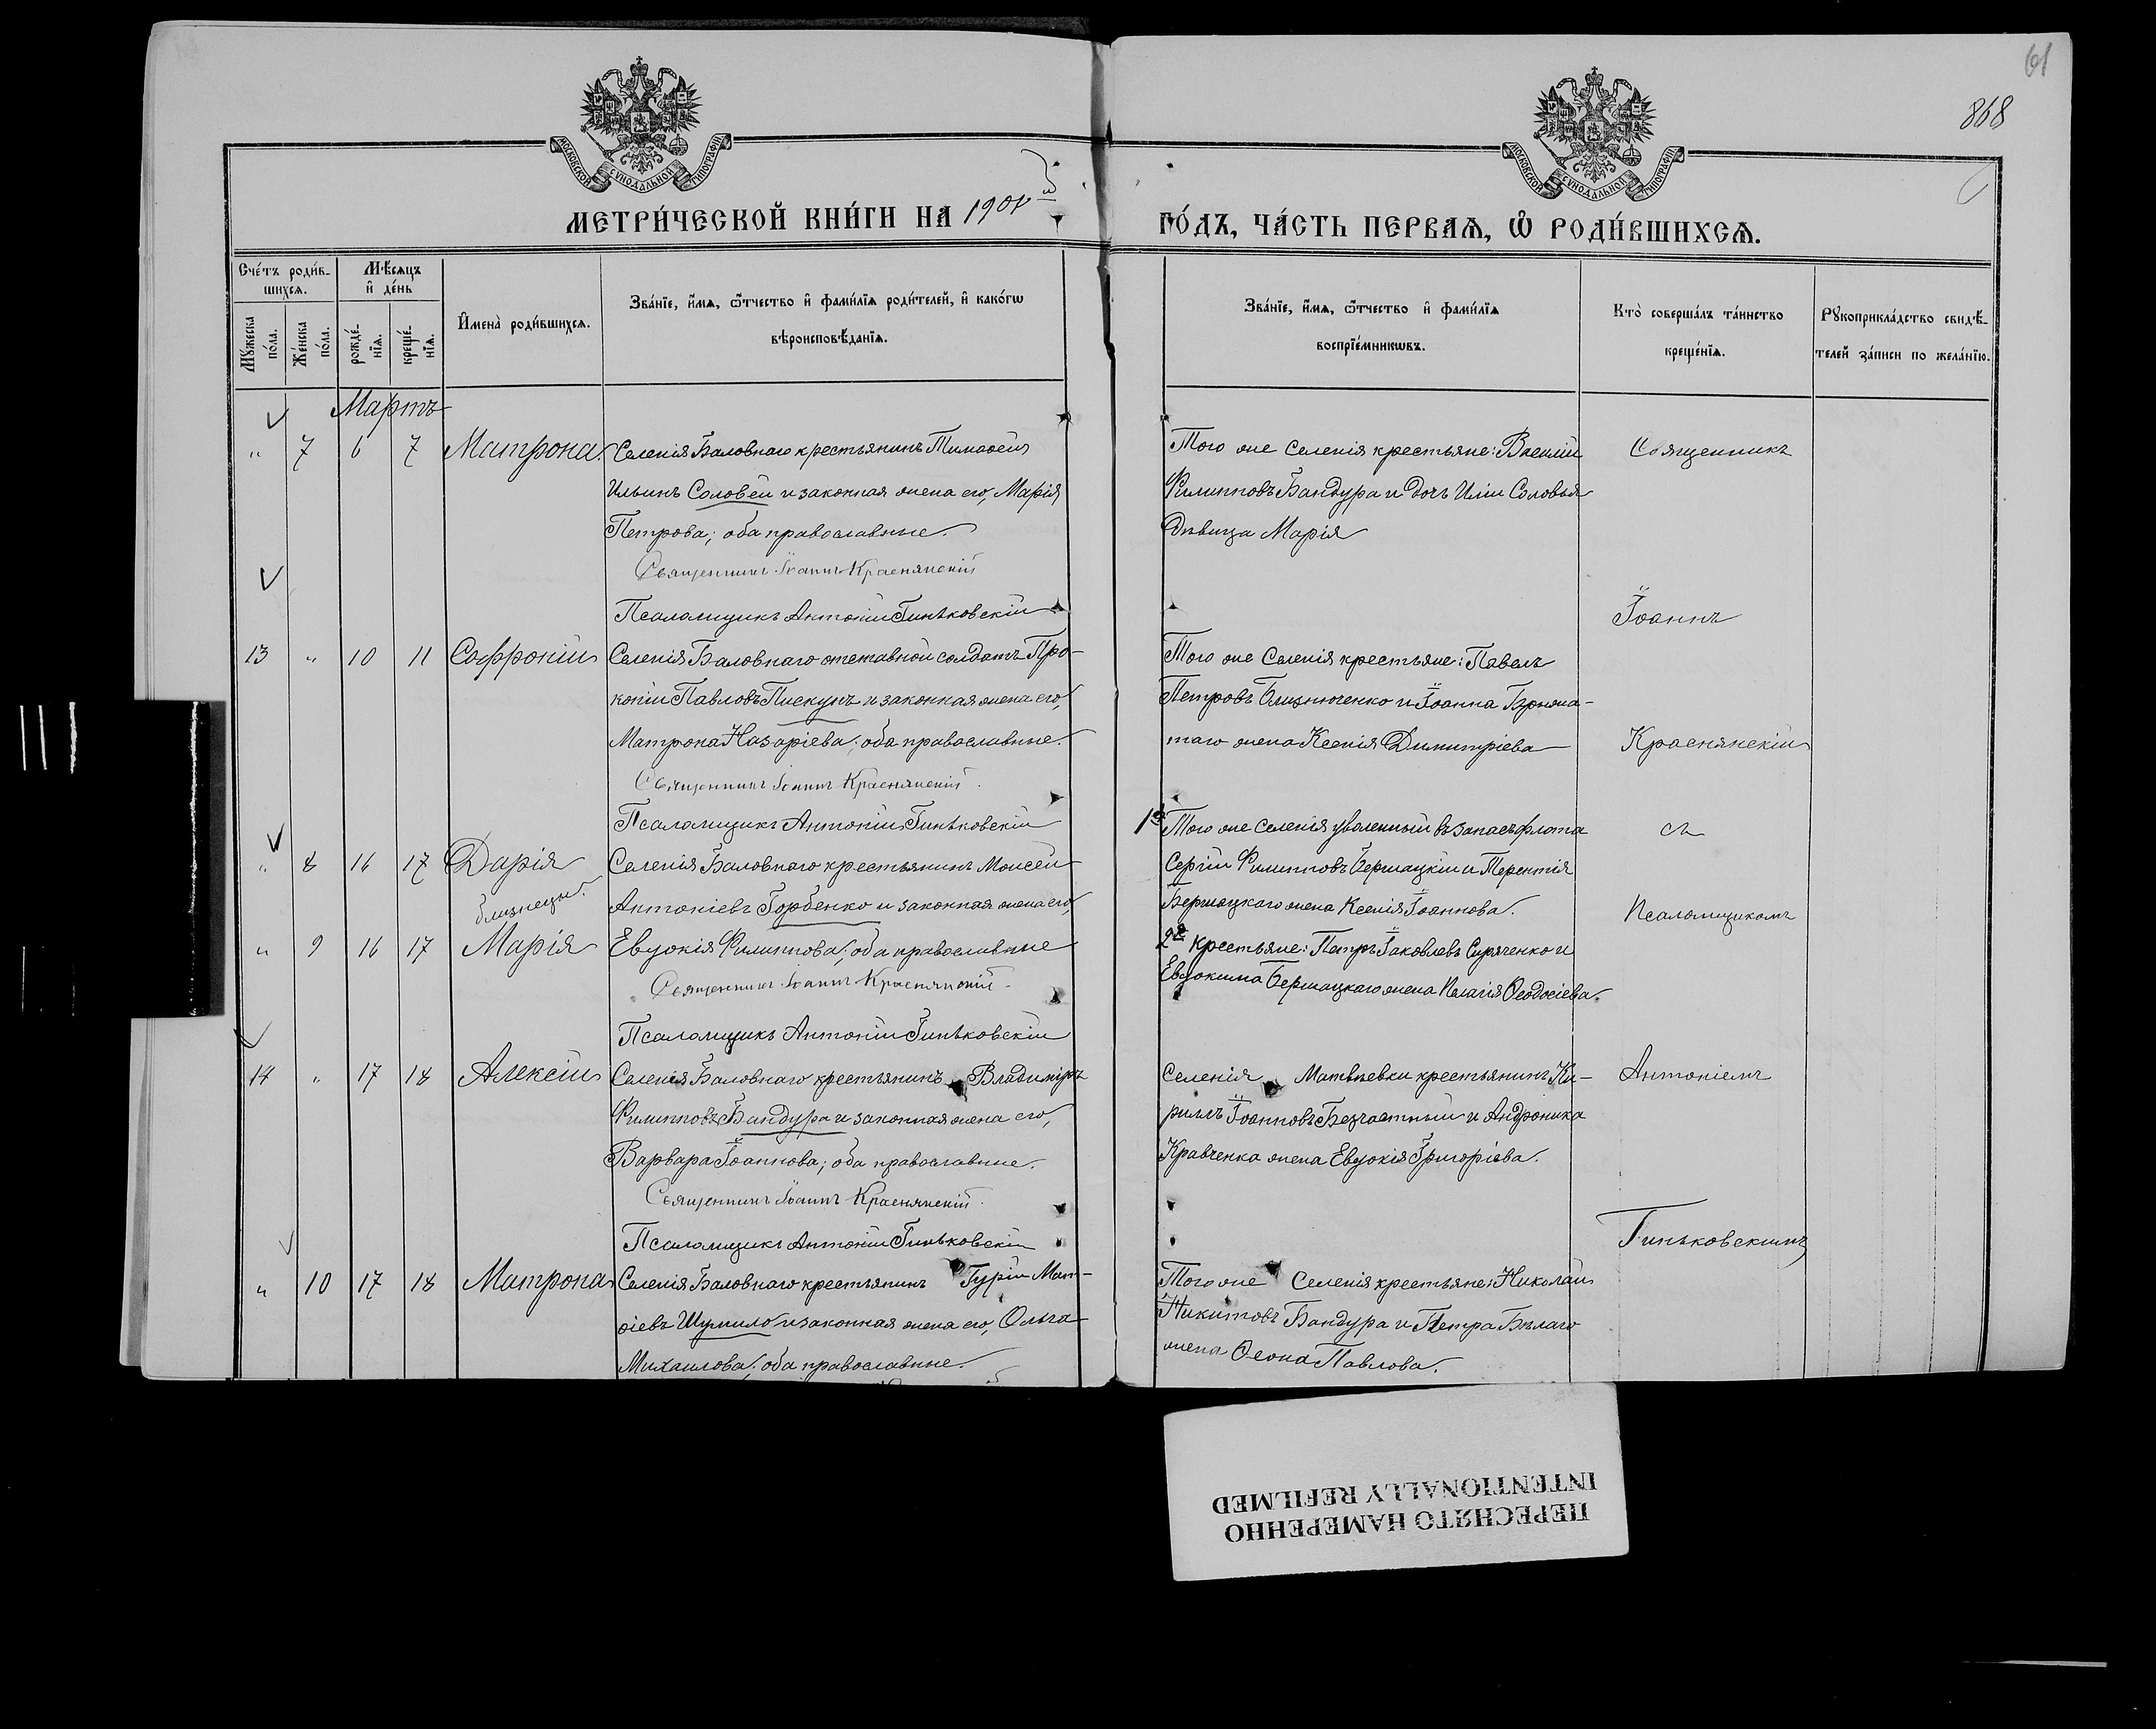 61
868
МОСКОВСКОЙ СѴНОДАЛЬНОЙ ТИПОГРАФІИ.
МОСКОВСКОЙ СѴНОДАЛЬНОЙ ТИПОГРАФІИ.
МЕТРИ́ЧЕСКОЙ КНИ́ГИ НА 190
ГО́ДЪ, ЧА́СТЬ ПЕРВАѦ, Ѡ҆ РОДИ́ВШИХСѦ.
Сче́тъ роди́в-
шихсѧ.
Мꙋ́жеска по́ла.
Же́нска по́ла.
Мѣ́сѧцъ
и҆ де́нь
рожде́-
нїѧ.
креще́-
нїѧ.
И҆мена̀ роди́вшихсѧ.
Зва́нїе, и҆́мѧ, ѻ҆́тчество и҆ фами́лїѧ роди́телей, и҆ како́гѡ
вѣроисповѣ́данїѧ.
Зва́нїе, и҆́мѧ, ѻ҆́тчество и҆ фами́лїѧ
воспрїе́мникѡвъ.
Кто̀ соверша́лъ та́инство
креще́нїѧ.
Рꙋкоприкла́дство свидѣ́-
телей за́писи по жела́нїю.
Мартъ
" 7 6 7 Матрона. Селенія Баловнаго крестьянинъ Тимоѳей
Ильинъ Соловей и законная жена его, Марія
Петрова; оба православные.
Священникъ Іоаннъ Краснянскій
Псаломщикъ Антоній Гиньковскій
Того же селенія крестьяне: Василій
Филипповъ Бандура и дочь Иліи Соловья
дѣвица Марія
Священникъ
Іоаннъ
13 " 10 11 Софроній Селенія Баловнаго отставной солдатъ Про-
копій Павловъ Пискунъ и законная жена его,
Матрона Назаріева; оба православные.
Священникъ Іоаннъ Краснянскій.
Псаломщикъ Антоній Гиньковскій
Того же Селенія крестьяне: Павелъ
Петровъ Близнюченко и Іоанна
таго жена Ксенія Димитріева
Краснянскій
" 8 16 17 Дарія Селенія Баловнаго крестьянинъ Моисей
близнецы. Антоніевъ Горбенко и законная жена его,
" 9 16 17 Марія Евдокія Филиппова; оба православные
Священникъ Іоаннъ Краснянскій.
Псаломщикъ Антоній Гиньковскій
1й Того же селенія уволенный въ запасъ флота
Сергій Филипповъ Бершацкій и Терентія
Бершацкаго жена Ксенія Іоаннова.
2й крестьяне: Петръ Іаковлевъ и
Евдокима Бершацкаго жена Пелагія Ѳеодосіева.
съ
Псаломщикомъ
14 " 17 18 Алексій Селенія Баловнаго крестьянинъ Владиміръ
Филипповъ Бандура и законная жена его,
Варвара Іоаннова; оба православные.
Священникъ Іоаннъ Краснянскій.
Псаломщикъ Антоній Гиньковскій
Селенія Матвѣевки крестьянинъ Ки-
риллъ Іоанновъ Безчастный и Андроника
Кравченка жена Евдокія Григоріева.
Антоніемъ
Гиньковскимъ
" 10 17 18 Матрона Селенія Баловнаго крестьянинъ Гурій Мат-
ѳіевъ Шумило и законная жена его, Ольга
Михаилова; оба православные.
Того же Селенія крестьяне: Николай
Никитовъ Бандура и Петра Бѣлаго
жена Ѳеона Павлова.
ПЕРЕСНЯТО НАМЕРЕННО
INTENTIONALLY REFILMED